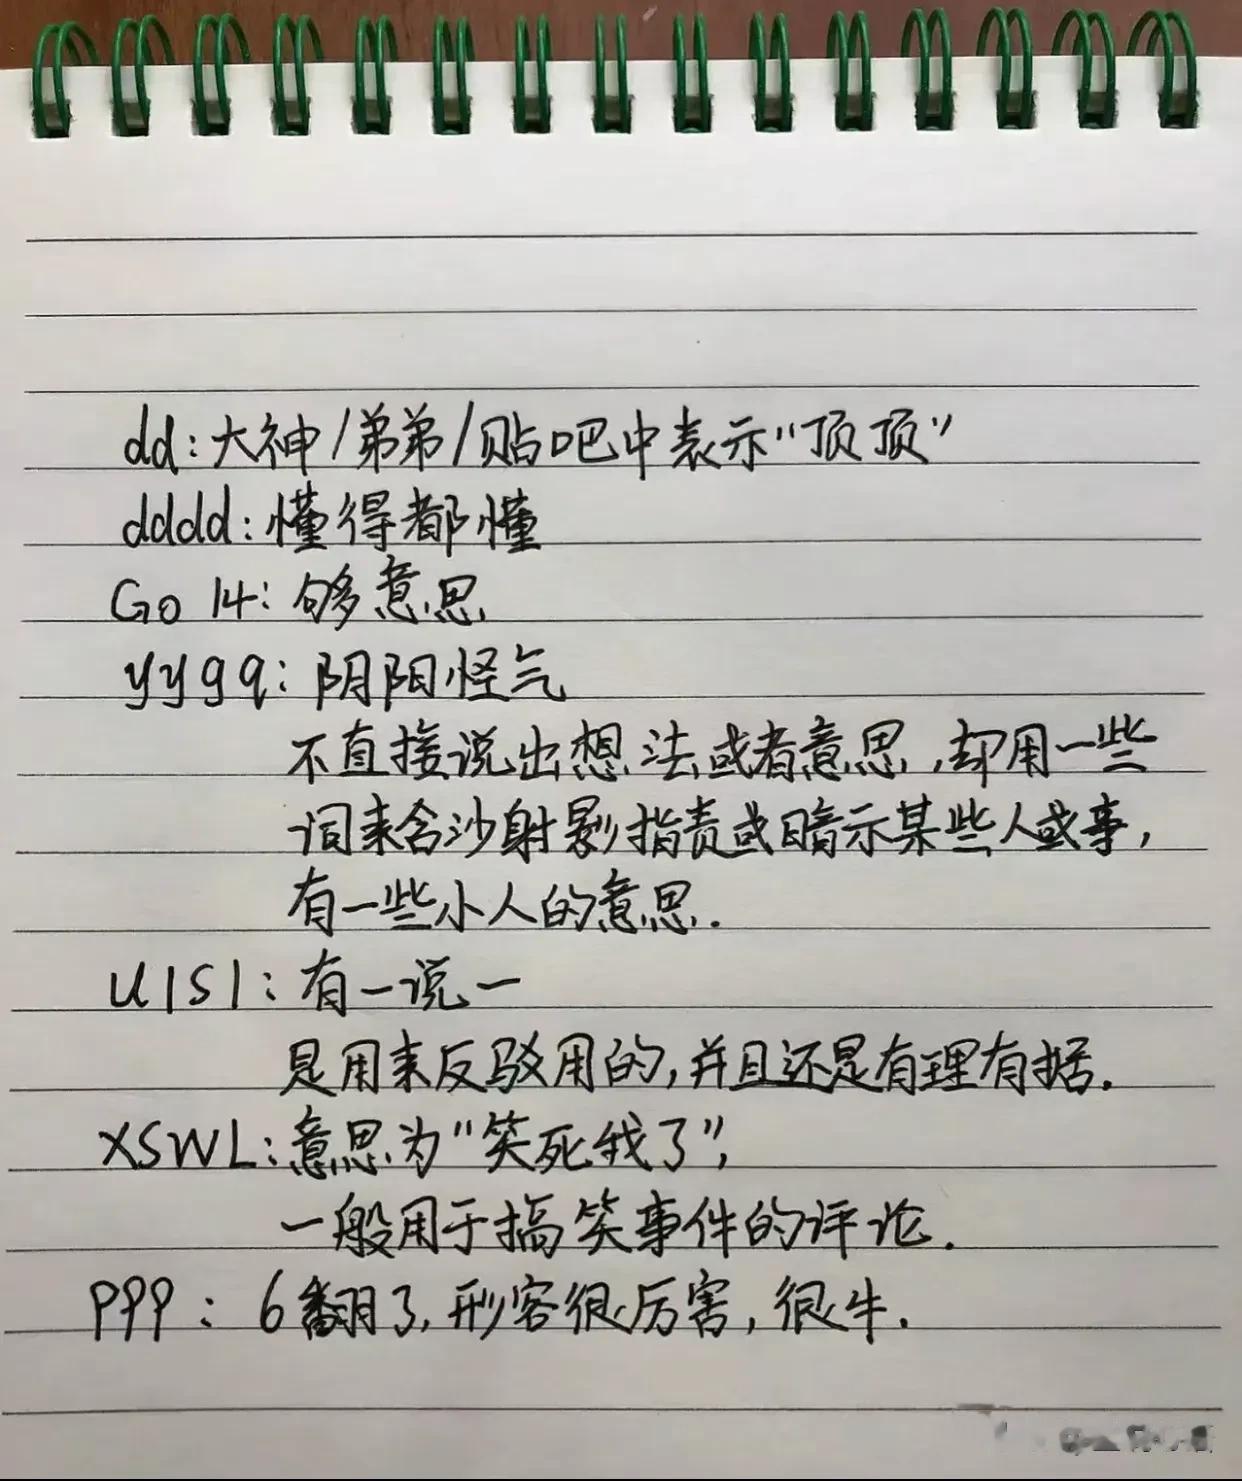 dd:大神/弟弟/贴吧中表示“顶顶”
dddd:懂得都懂
Go 14:够意思
yygq:阴阳怪气
不直接说出想法或者意思,却用一些
词来含沙射影指责或暗示某些人或事,
有一些小人的意思.
U1S1:有一说一
是用来反驳用的,并且还是有理有据.
XSWL:意思为“笑死我了”,
一般用于搞笑事件的评论.
PPP:6翻了,形容很厉害,很牛.